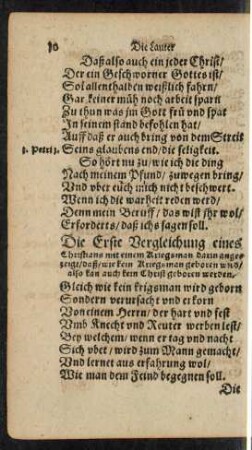 10 Die Lauter
Daß also auch ein jeder Christ/
Der ein Geschworner Gottes ist/
Sol allenthalben weißlich fahrn/
Gar keiner müh noch arbeit sparn
Zu thun was jm Gott frü und spat
In seinem stand befohlen hat/
Auff daß er auch bring von dem Streit
1. Petri 1. Seins glaubens end/ die seligkeit.
So hört nu zu/ wie ich die ding
Nach meinem Pfund/ zuwegen bring/
Und vber euch mich nicht beschwert.
Wenn ich die warheit reden werd/
Denn mein Beruff/ das wist jhr wol/
Erforderts/ daß ichs sagen soll.
Die Erste Vergleichung eines
Christians mit einem Kriegsman darin ange-
zeigt/ daß/ wie kein Kriegsman geboren wird/
also kan auch kein Christ geboren werden.
Gleich wie kein krigsman wird geborn
Sondern verursacht und erkorn
Von einem Herrn/ der hart und fest
Umb Knecht und Reuter werben lest/
Bey welchem/ wenn er tag und nacht
Sich vbet/ wird zum Mann gemacht/
Und lernet aus erfahrung wol/
Wie man dem Feind begegnen soll.
Die